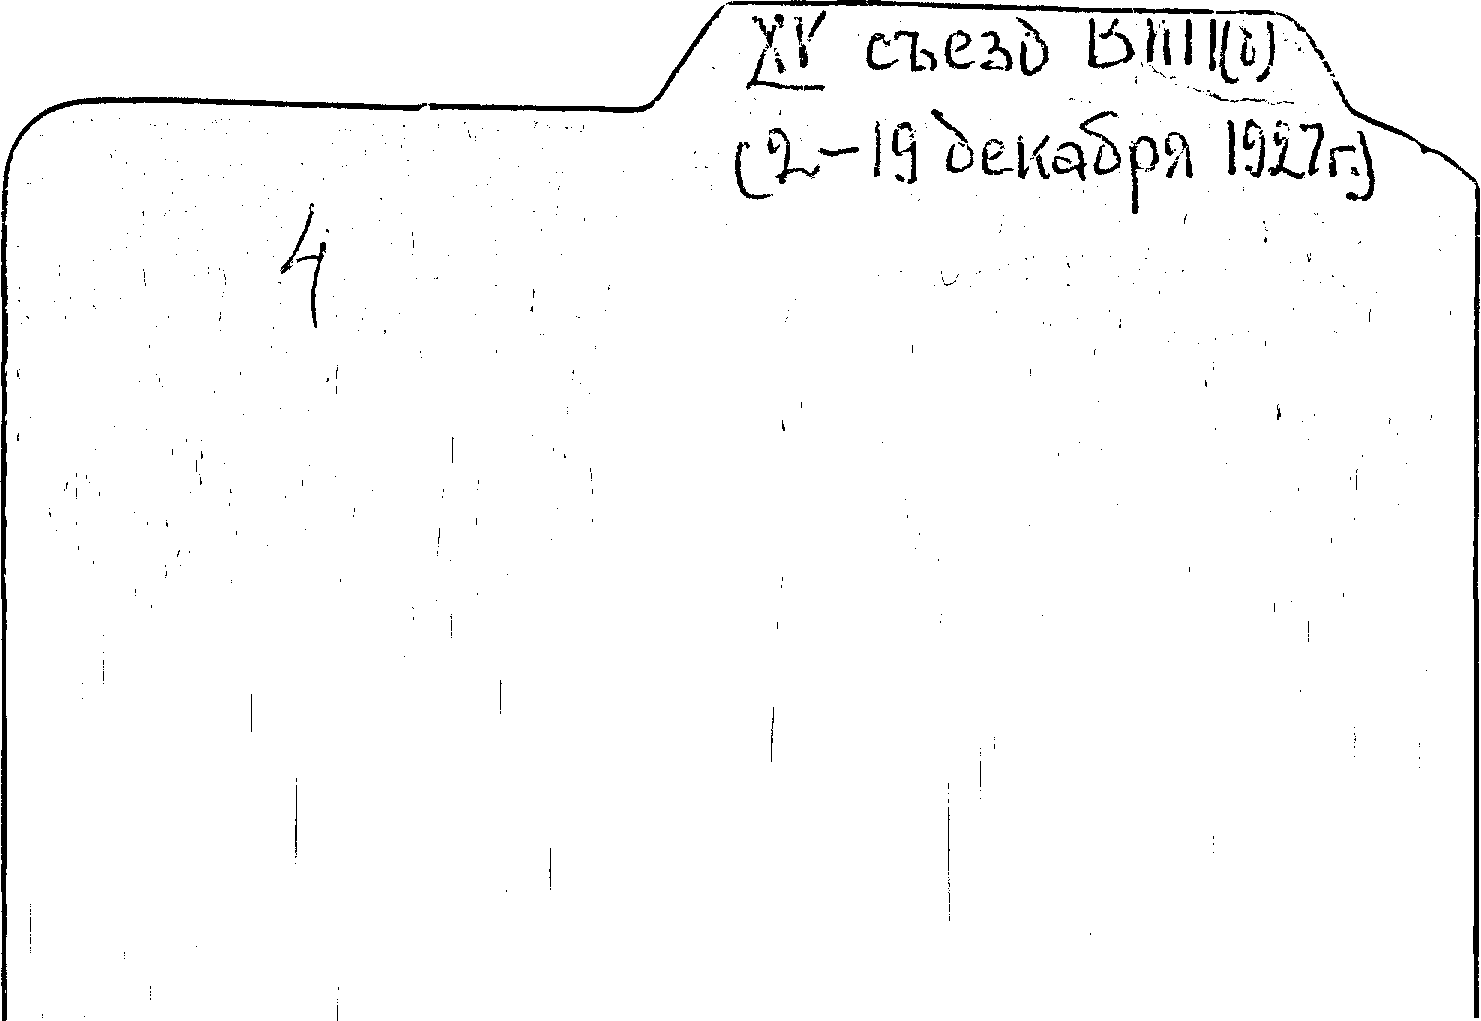 XV съезд ВКП(б)
(2-19 декабря 1927г.)
4